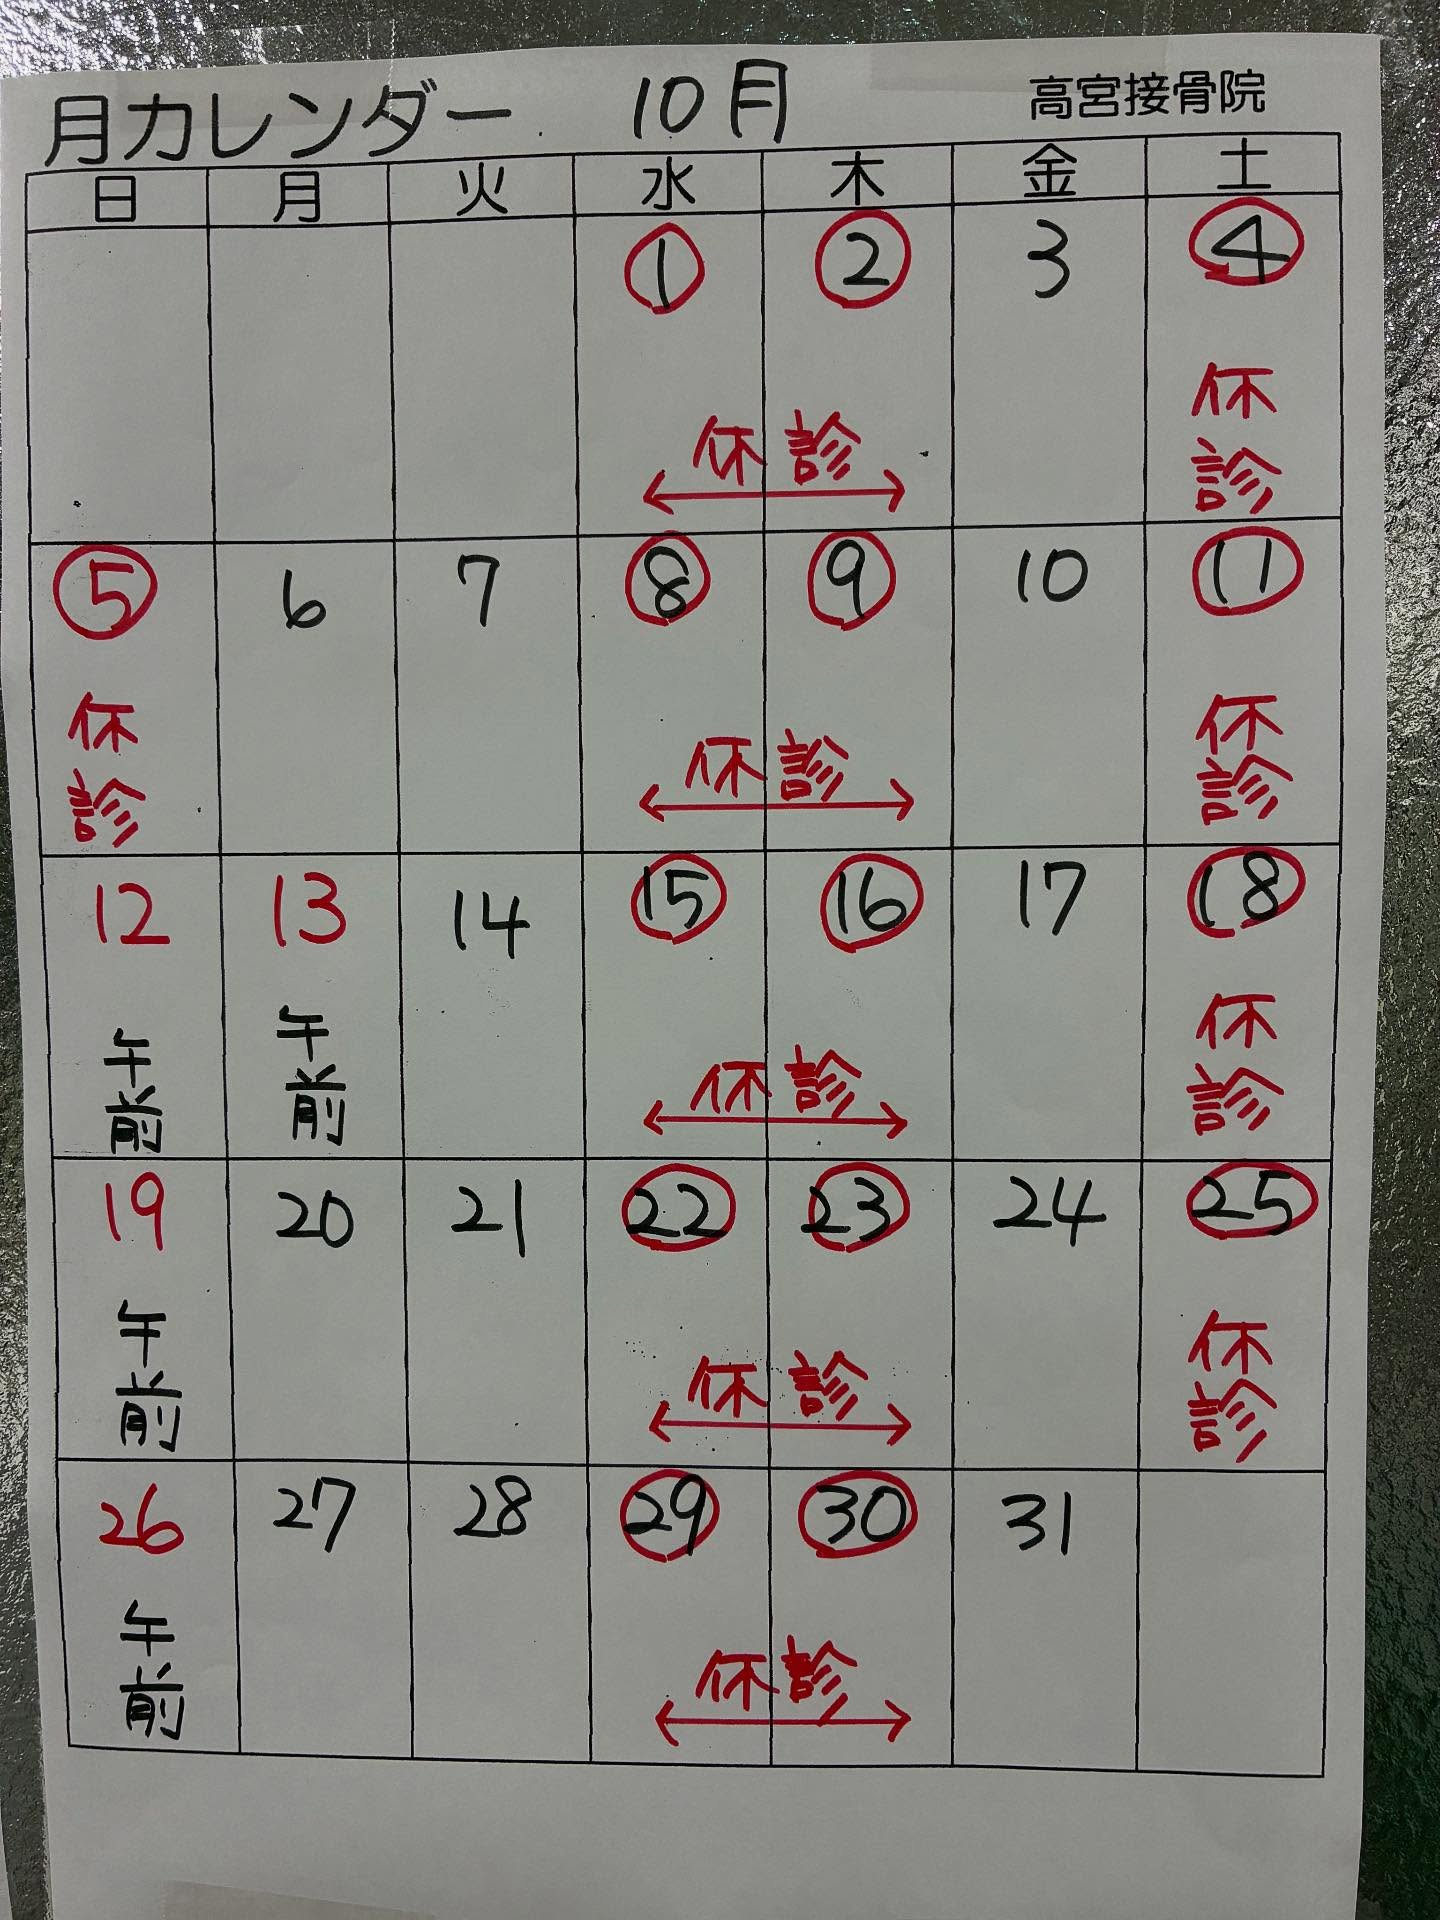 月カレンダー 10月 高宮接骨院
日 月 火 水 木 金 土
1 2 3 4
休診 休診
5 6 7 8 9 10 11
休診 休診 休診
12 13 14 15 16 17 18
午前 午前 休診 休診
19 20 21 22 23 24 25
午前 休診 休診
26 27 28 29 30 31
午前 休診